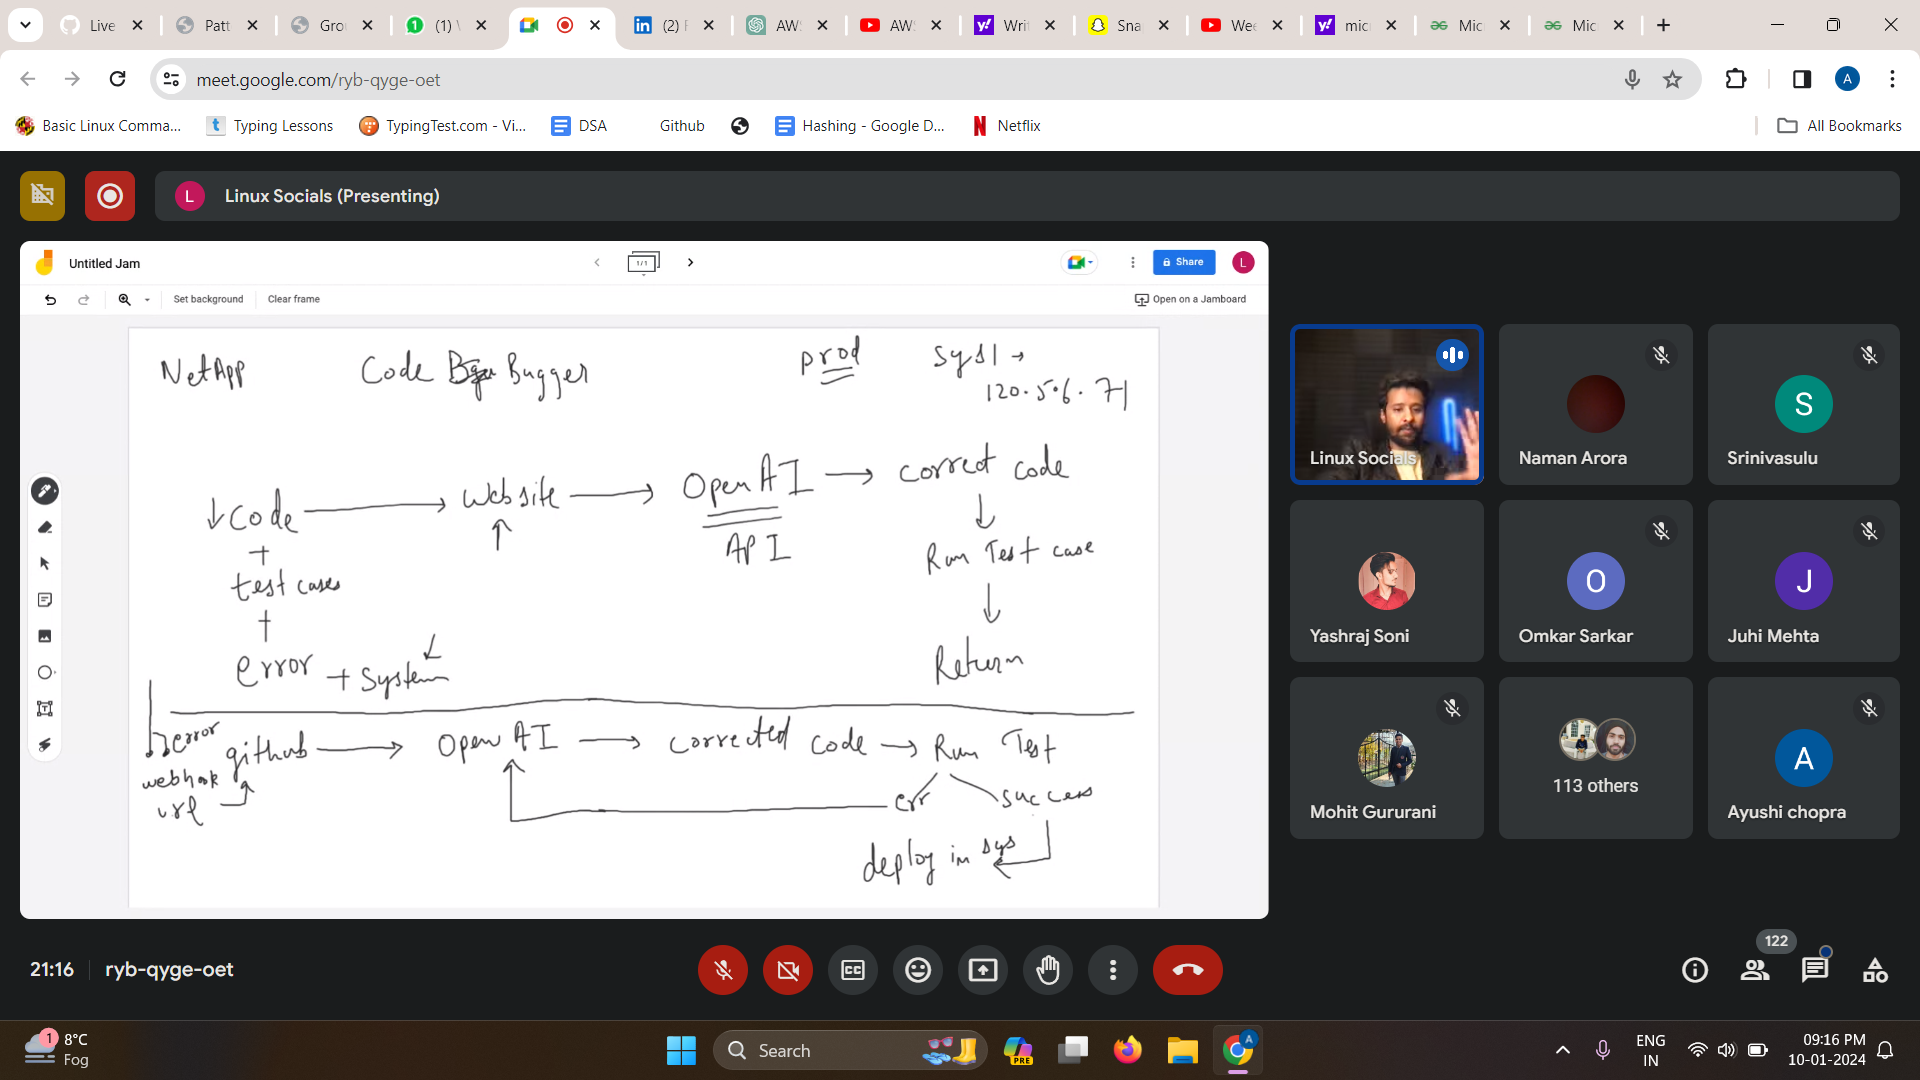 Live
Patt
Gro
(1)
(2)
AW
AW
Writ
Sna
Wee
mic
Mic
Mic
meet.google.com/ryb-qyge-oet
A
Basic Linux Comma...
Typing Lessons
TypingTest.com - Vi...
DSA
Github
Hashing - Google D...
Netflix
All Bookmarks
L
Linux Socials (Presenting)
Untitled Jam
1/1
Share
L
Set background
Clear frame
Open on a Jamboard
NetApp Code Bugger prod sys1 →
120.5.6.71
↓ Code → Website → OpenAI → correct code
+ ↑ API ↓
test cases Run Test case
+ ↓
error + System Return
error
github → Open AI → corrected code → Run Test
webhook
url
err success
deploy in sys
Linux Socials
Naman Arora
S
Srinivasulu
Yashraj Soni
O
Omkar Sarkar
J
Juhi Mehta
Mohit Gururani
113 others
A
Ayushi chopra
21:16 ryb-qyge-oet
CC
122
1
8°C
Fog
Search
PRE
A
ENG
IN
09:16 PM
10-01-2024